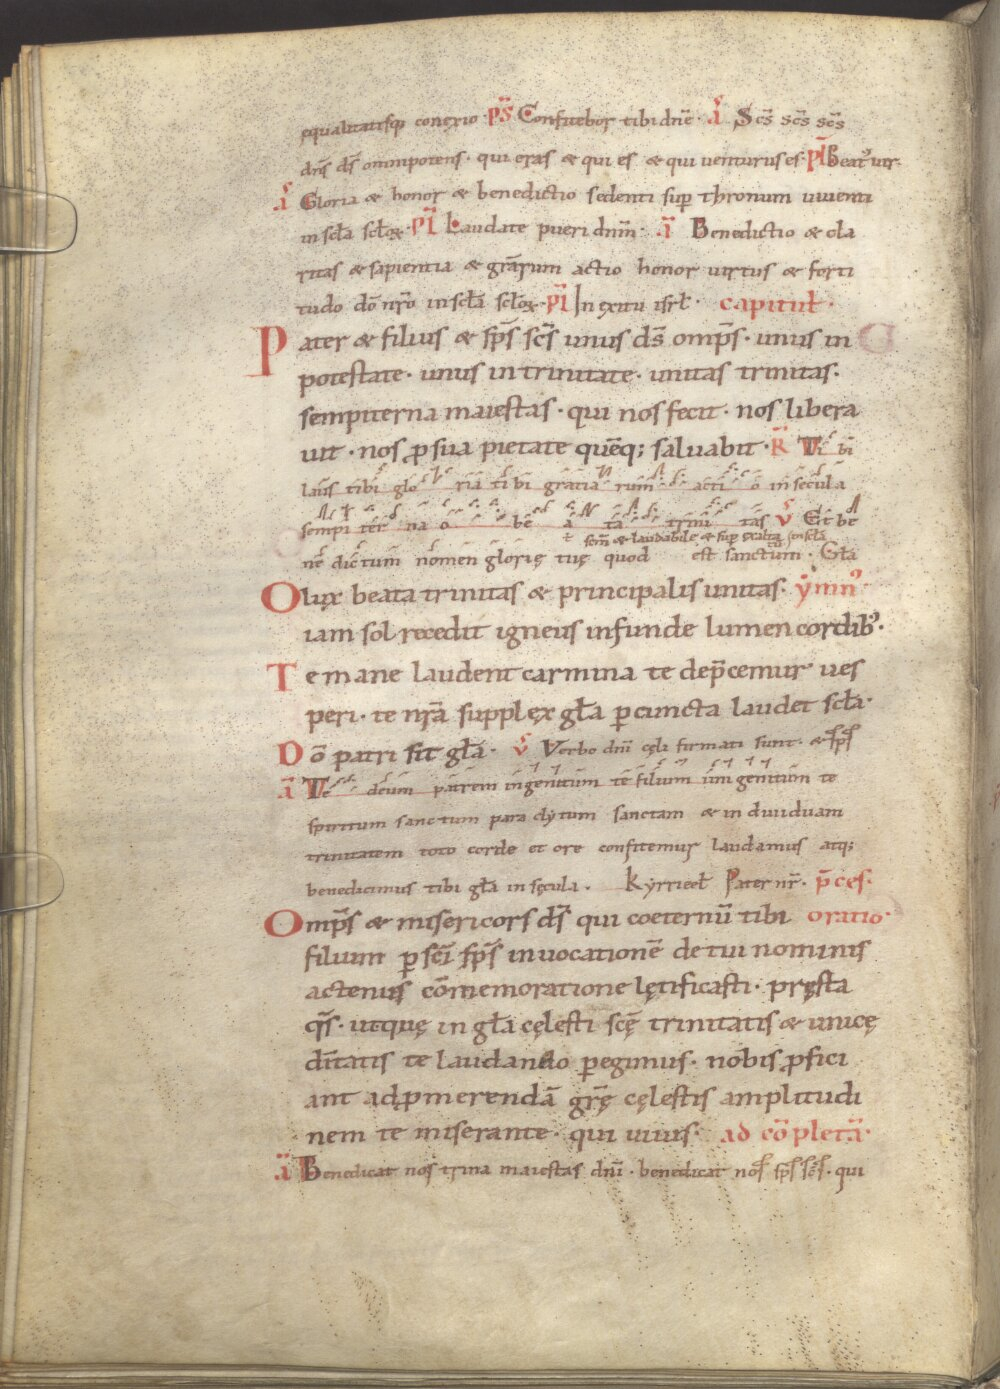 equalitatisq; conexio· p̄s Confitebor tibi dn̄e· ā Scs̄ scs̄ scs̄
dn̄s ds̄ omnipotens· qui eras & qui es & qui uenturus es· p̄l Beat᷒ uir·
ā Gloria & honor & benedictio sedenti sup thronum uiuenti
in scl̄a scl̄oꝝ· p̄l Laudate pueri dn̄m· ā Benedictio & cla
ritas & sapientia & grār̄um actio honor uirtus & forti
tudo dō nr̄o in scl̄a scl̄oꝝ· p̄l In exitu isrl̄· capitul̄·
Pater & filius & sp̄s sc̄s unus ds̄ omp̄s· unus in
potestate· unus in trinitate· unitas trinitas·
sempiterna maiestas· qui nos fecit· nos libera
uit· nos ꝓ sua pietate quēq; saluabit· R̄ Tibi
laus tibi glo ria tibi gratia rum acti o in secula
sempi ter na o be a ta trini tas v̄ Et be
sem̄ & laudabile & sup exalta tū in scl̄a
ne dictum nomen glorię tuę quod est sanctum· Gl̄a
O lux beata trinitas & principalis unitas· ymn᷒·
iam sol recedit igneus infunde lumen cordib᷒·
Te mane laudent carmina te dep̄cemur ues
peri· te nr̄a supplex gl̄a ꝑ cuncta laudet scl̄a·
Dō patri sit gl̄a· v̄ Verbo dn̄i cęli firmati sunt· & sp̄s
ā Te deum patrem ingenitum te filium unigenitum te
spiritum sanctum paraclytum sanctam & indiuiduam
trinitatem toto corde et ore confitemur laudamus atq;
benedicimus tibi gl̄a in sęcula· kyrrieel̄ Pater nr̄· p̄ces·
Omp̄s & misericors ds̄ qui coeternū tibi oratio·
filium ꝑ sc̄i sp̄s inuocationē de tui nominis
actenus cōmemoratione lętificasti· pręsta
qs̄· utquę in gl̄a cęlesti scę̄ trinitatis & unicę
dn̄itatis te laudando ꝑegimus· nobis ꝓfici
ant ad ꝓmerendā gr̄ę cęlestis amplitudi
nem te miserante· qui uiuis· ad cōpletā·
ā Benedicat nos trina maiestas dn̄i· benedicat nos sp̄s sc̄s· qui